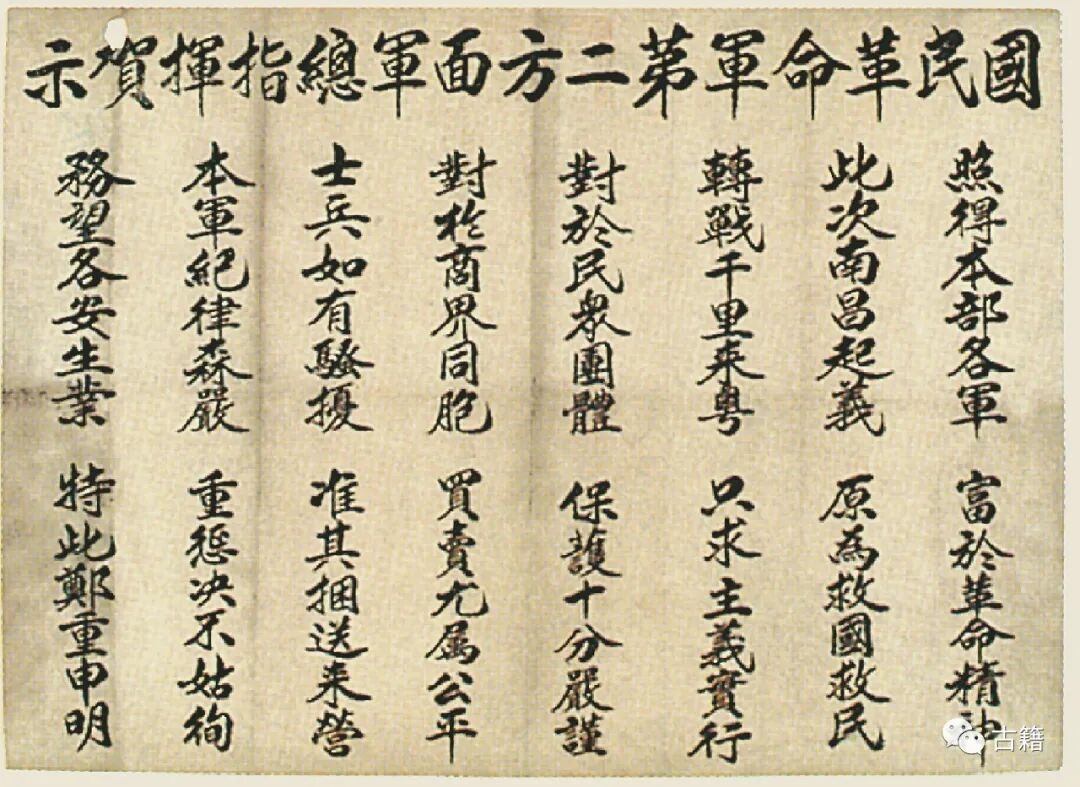 國民革命軍第二方面軍總指揮賀示
照得本部各軍 富於革命精神
此次南昌起義 原為救國救民
轉戰千里來粤 只求主義實行
對於民眾團體 保護十分嚴謹
對於商界同胞 買賣尤属公平
士兵如有騷擾 准其捆送来營
本軍紀律森嚴 重惩决不姑徇
務望各安生業 特此鄭重申明
古籍